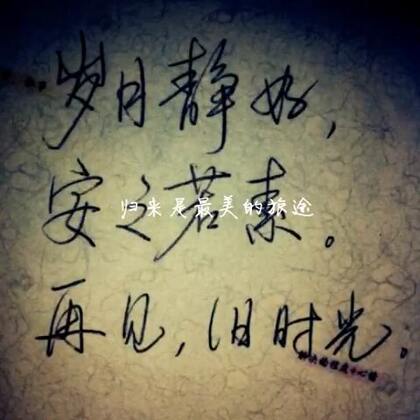 岁月静好，
安之若素。
归来是最美的旅途
再见，旧时光。